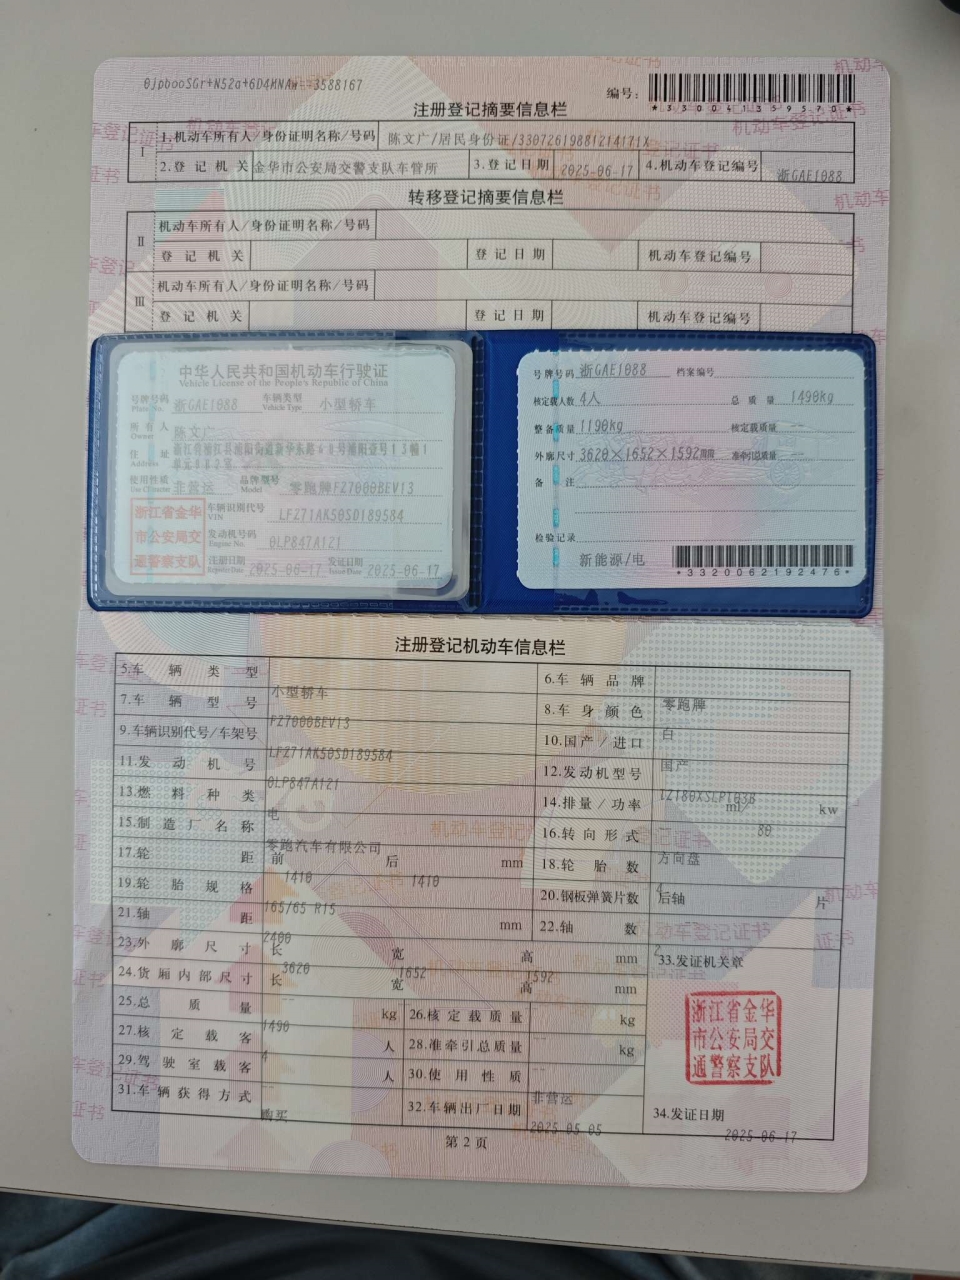 0jpbooSGr+N52a+6D4MNAw==3588167
编号:
*330041359570*
注册登记摘要信息栏
I
1.机动车所有人/身份证明名称/号码 陈文广/居民身份证/33072619881214171X
2.登记机关 金华市公安局交警支队车管所 3.登记日期 2025-06-17 4.机动车登记编号 浙GAE1088
转移登记摘要信息栏
II
机动车所有人/身份证明名称/号码
登记机关 登记日期 机动车登记编号
III
机动车所有人/身份证明名称/号码
登记机关 登记日期 机动车登记编号
中华人民共和国机动车行驶证
Vehicle License of the People's Republic of China
号牌号码 浙GAE1088 车辆类型 小型轿车
Plate No. Vehicle Type
所有人 陈文广
Owner
住址
Address
使用性质 非营运 品牌型号 零跑牌FZ7000BEV13
Use Character Model
浙江省金华
市公安局交
通警察支队
车辆识别代号 LFZ71AK50SD189584
VIN
发动机号码 0LP847A121
Engine No.
注册日期 2025-06-17 发证日期 2025-06-17
Register Date Issue Date
号牌号码 浙GAE1088 档案编号
核定载人数 4人 总质量 1490kg
整备质量 1190kg 核定载质量 --
外廓尺寸 3620×1652×1592mm 准牵引总质量 --
备注
检验记录
新能源/电
*3320062192476*
注册登记机动车信息栏
5.车辆类型 小型轿车 6.车辆品牌 零跑牌
7.车辆型号 FZ7000BEV13 8.车身颜色 白
9.车辆识别代号/车架号 LFZ71AK50SD189584 10.国产/进口 国产
11.发动机号 0LP847A121 12.发动机型号 TZ180XSLP103B
13.燃料种类 电 14.排量/功率 ml/ 80 kw
15.制造厂名称 零跑汽车有限公司 16.转向形式 方向盘
17.轮距 前 1410 后 1410 mm 18.轮胎数 4
19.轮胎规格 165/65 R15 20.钢板弹簧片数 后轴 片
21.轴距 2400 mm 22.轴数 2
23.外廓尺寸 长 3620 宽 1652 高 1592 mm 33.发证机关章
24.货厢内部尺寸 长 -- 宽 高 mm
25.总质量 1490 kg 26.核定载质量 -- kg
27.核定载客 4 人 28.准牵引总质量 -- kg
29.驾驶室载客 -- 人 30.使用性质 非营运
31.车辆获得方式 购买 32.车辆出厂日期 2025-05-05 34.发证日期 2025-06-17
浙江省金华
市公安局交
通警察支队
第2页